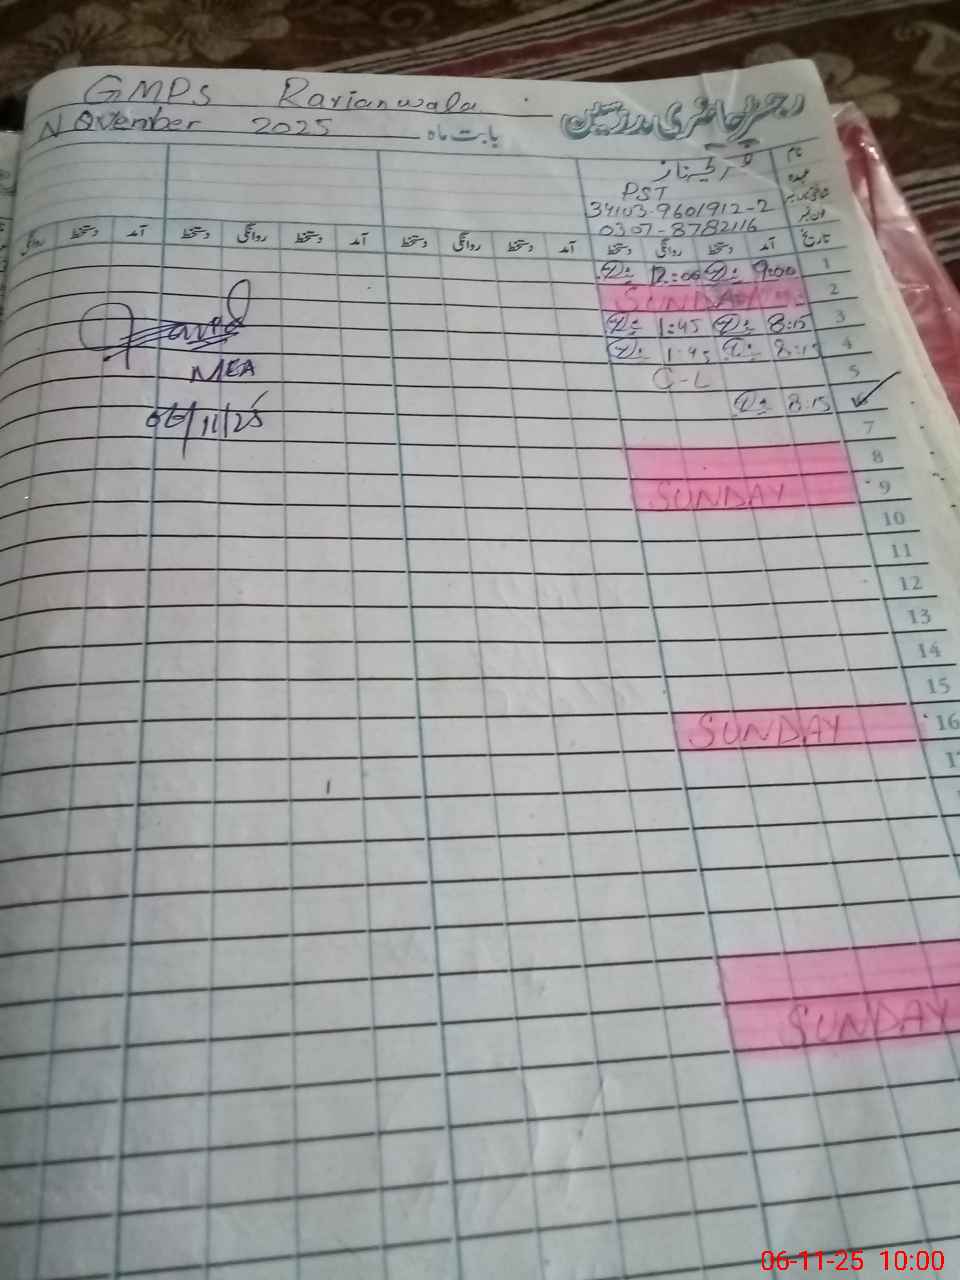 GMPS Rarianwala
رجسٹر حاضری مدرسین
November 2025 بابت ماہ
نام
عہدہ PST
34103-9601912-2
0307-8782116
تاریخ آمد دستخط روانگی دستخط آمد دستخط روانگی دستخط آمد دستخط روانگی دستخط آمد دستخط روانگی
1 9:00 12:00
2 SUNDAY
3 8:15 1:45
4 8:15 1:45
5 C-L
8:15
7
8
9 SUNDAY
10
11
12
13
14
15
16 SUNDAY
SUNDAY
MEA
06/11/25
06-11-25 10:00